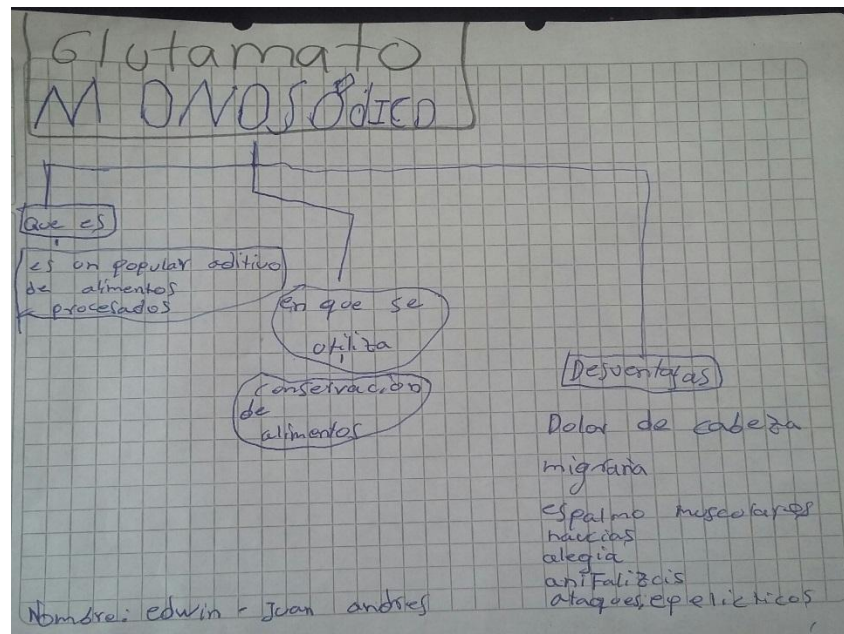 Glutamato
MONOSÓdICO
Que es
es un popular aditivo
de alimentos
procesados
en que se
otiliza
conservación
de
alimentos
Desventajas
Dolor de cabeza
migraña
espalmo muscolares
naucias
alegia
anifalizcis
ataques epelicticos
Nombre: edwin - Juan andres